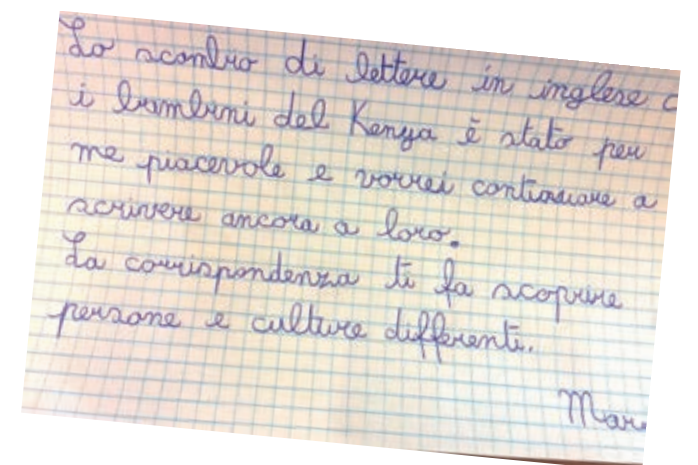 Lo scambio di lettere in inglese c
i bambini del Kenya è stato per
me piacevole e vorrei continuare a
scrivere ancora a loro.
La corrispondenza ti fa scoprire
persone e culture differenti.
Mar